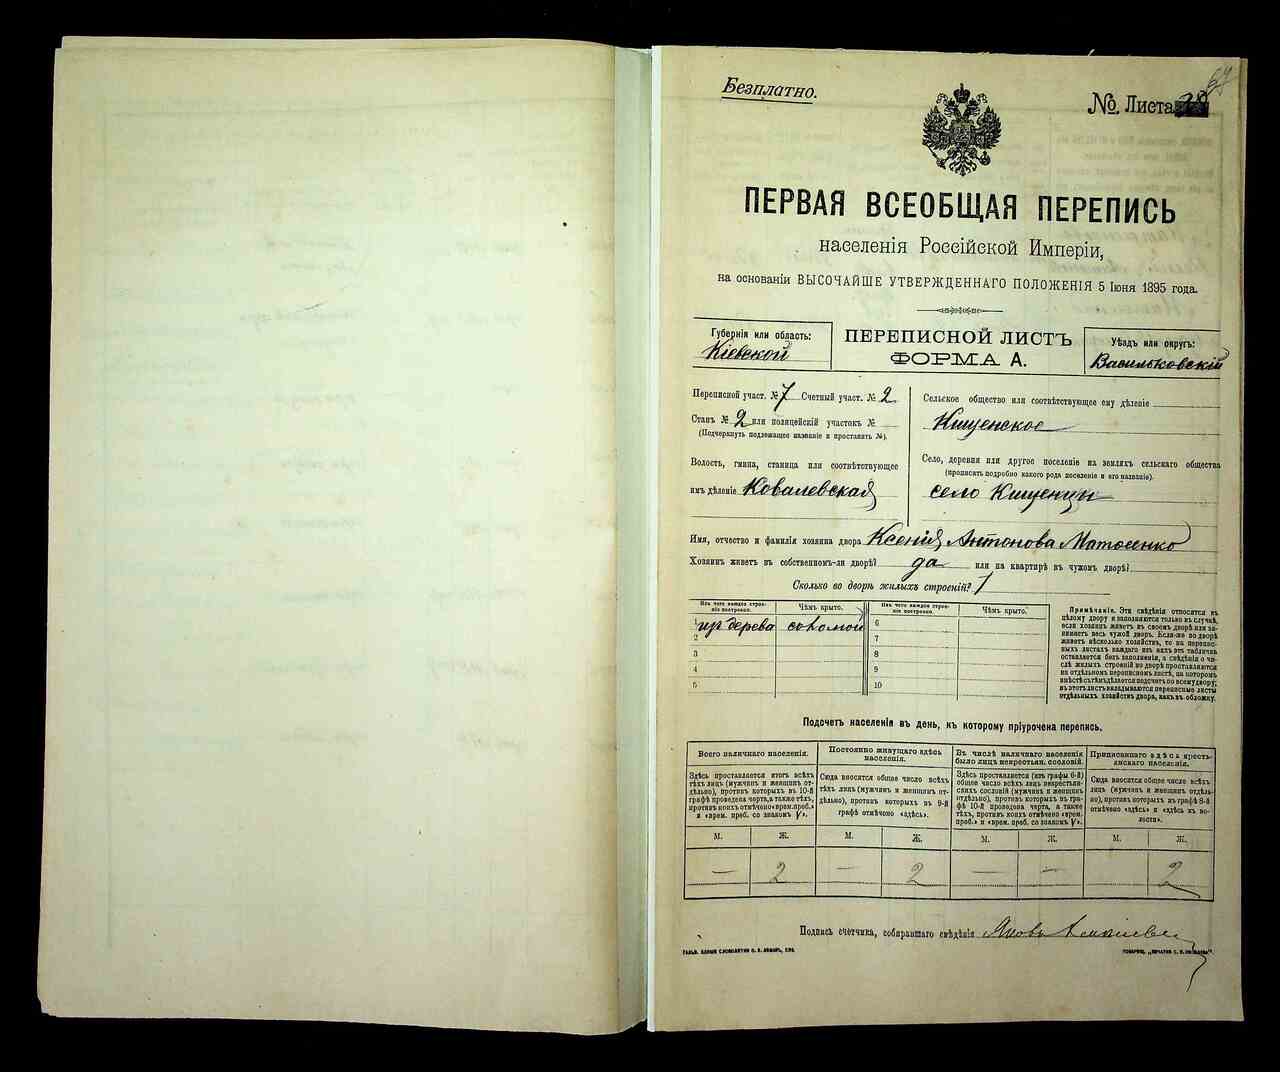 Безплатно.
№ Листа
67
ПЕРВАЯ ВСЕОБЩАЯ ПЕРЕПИСЬ
населенія Россійской Имперіи,
на основаніи ВЫСОЧАЙШЕ УТВЕРЖДЕННАГО ПОЛОЖЕНІЯ 5 Іюня 1895 года.
Губернія или область:
Кіевской
ПЕРЕПИСНОЙ ЛИСТЪ
ФОРМА А.
Уѣздъ или округъ:
Васильковскій
Переписной участ. № 7 Счетный участ. № 2
Станъ № 2 или полицейскій участокъ №
(Подчеркнуть подлежащее названіе и проставить №).
Волость, гмина, станица или соотвѣтствующее
имъ дѣленіе Ковалевская
Сельское общество или соотвѣтствующее ему дѣленіе
Кищенское
Село, деревня или другое поселеніе на земляхъ сельскаго общества
(прописать подробно какого рода поселеніе и его названіе).
село Кищенцы
Имя, отчество и фамилія хозяина двора Ксенія Антонова
Хозяинъ живетъ въ собственномъ-ли дворѣ? да или на квартирѣ въ чужомъ дворѣ?
Сколько во дворѣ жилыхъ строеній? 1
Изъ чего каждое строеніе построено.
Чѣмъ крыто.
Изъ чего каждое строеніе построено.
Чѣмъ крыто.
1 изъ дерева соломой 6
2 7
3 8
4 9
5 10
Примѣчаніе. Эти свѣдѣнія относятся къ
цѣлому двору и заполняются только въ случаѣ,
если хозяинъ живетъ въ своемъ дворѣ или занимаетъ
весь чужой дворъ. Если-же во дворѣ
живетъ нѣсколько хозяйствъ, то на переписныхъ
листахъ каждаго изъ нихъ эта табличка
оставляется безъ заполненія, а свѣдѣнія о числѣ
жилыхъ строеній во дворѣ проставляются
на отдѣльномъ переписномъ листѣ, на которомъ
вмѣстѣ съ тѣмъ дѣлается подсчетъ по всему двору;
въ этотъ листъ вкладываются переписные листы
отдѣльныхъ хозяйствъ двора, какъ въ обложку.
Подсчетъ населенія въ день, къ которому пріурочена перепись.
Всего наличнаго населенія.
Здѣсь проставляется итогъ всѣхъ
тѣхъ лицъ (мужчинъ и женщинъ отдѣльно),
противъ которыхъ въ 10-й
графѣ проведена черта, а также тѣхъ,
противъ коихъ отмѣчено «врем. преб.»
и «врем. преб. со знакомъ V».
Постоянно живущаго здѣсь
населенія.
Сюда вносится общее число всѣхъ
тѣхъ лицъ (мужчинъ и женщинъ отдѣльно),
противъ которыхъ въ 9-й
графѣ отмѣчено «здѣсь».
Въ числѣ наличнаго населенія
было лицъ некрестьян. сословій.
Здѣсь проставляется (изъ графы 6-й)
общее число лицъ некрестьянскихъ
сословій (мужчинъ и женщинъ
отдѣльно), противъ которыхъ въ графѣ
10-й проведена черта, а также
тѣхъ, противъ коихъ отмѣчено «врем.
преб.» и «врем. преб. со знакомъ V».
Приписаннаго здѣсь крестьянскаго
населенія.
Сюда вносится общее число всѣхъ
лицъ (мужчинъ и женщинъ отдѣльно),
противъ которыхъ въ графѣ 8-й
отмѣчено «здѣсь» и «здѣсь въ волости».
М. Ж. М. Ж. М. Ж. М. Ж.
— 2 — 2 — — 2
Подпись счетчика, собиравшаго свѣдѣнія Яковъ